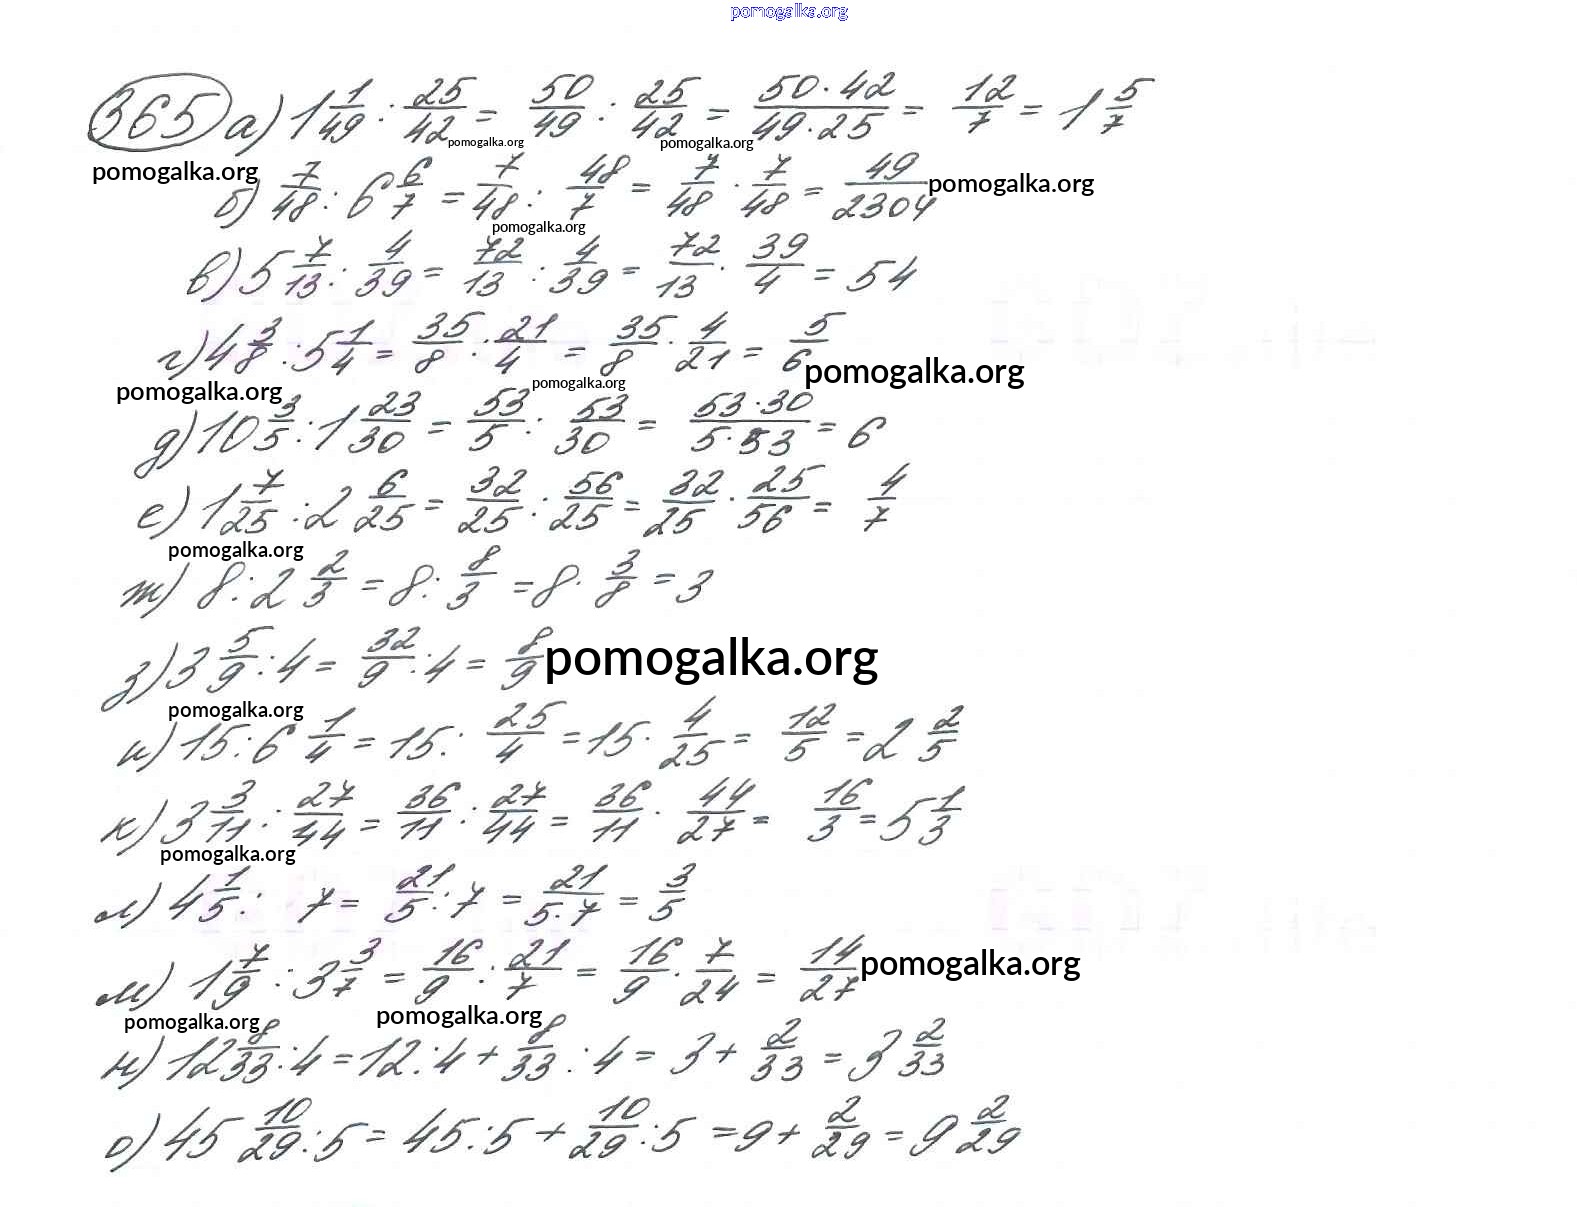 pomogalka.org
365 а) 1 1/49 : 25/42 = 50/49 : 25/42 = 50·42/49·25 = 12/7 = 1 5/7
pomogalka.org pomogalka.org
pomogalka.org
б) 7/48 : 6 6/7 = 7/48 : 48/7 = 7/48 · 7/48 = 49/2304 pomogalka.org
pomogalka.org
в) 5 7/13 : 4/39 = 72/13 : 4/39 = 72/13 · 39/4 = 54
г) 4 3/8 : 5 1/4 = 35/8 : 21/4 = 35/8 · 4/21 = 5/6 pomogalka.org
pomogalka.org pomogalka.org
д) 10 3/5 : 1 23/30 = 53/5 : 53/30 = 53·30/5·53 = 6
е) 1 7/25 : 2 6/25 = 32/25 : 56/25 = 32/25 · 25/56 = 4/7
pomogalka.org
ж) 8 : 2 2/3 = 8 : 8/3 = 8 · 3/8 = 3
з) 3 5/9 : 4 = 32/9 : 4 = 8/9 pomogalka.org
pomogalka.org
и) 15 : 6 1/4 = 15 : 25/4 = 15 · 4/25 = 12/5 = 2 2/5
к) 3 3/11 : 27/44 = 36/11 : 27/44 = 36/11 · 44/27 = 16/3 = 5 1/3
pomogalka.org
л) 4 1/5 : 7 = 21/5 : 7 = 21/5·7 = 3/5
м) 1 7/9 : 3 3/7 = 16/9 : 21/7 = 16/9 · 7/24 = 14/27 pomogalka.org
pomogalka.org pomogalka.org
н) 12 8/33 : 4 = 12 : 4 + 8/33 : 4 = 3 + 2/33 = 3 2/33
о) 45 10/29 : 5 = 45 : 5 + 10/29 : 5 = 9 + 2/29 = 9 2/29